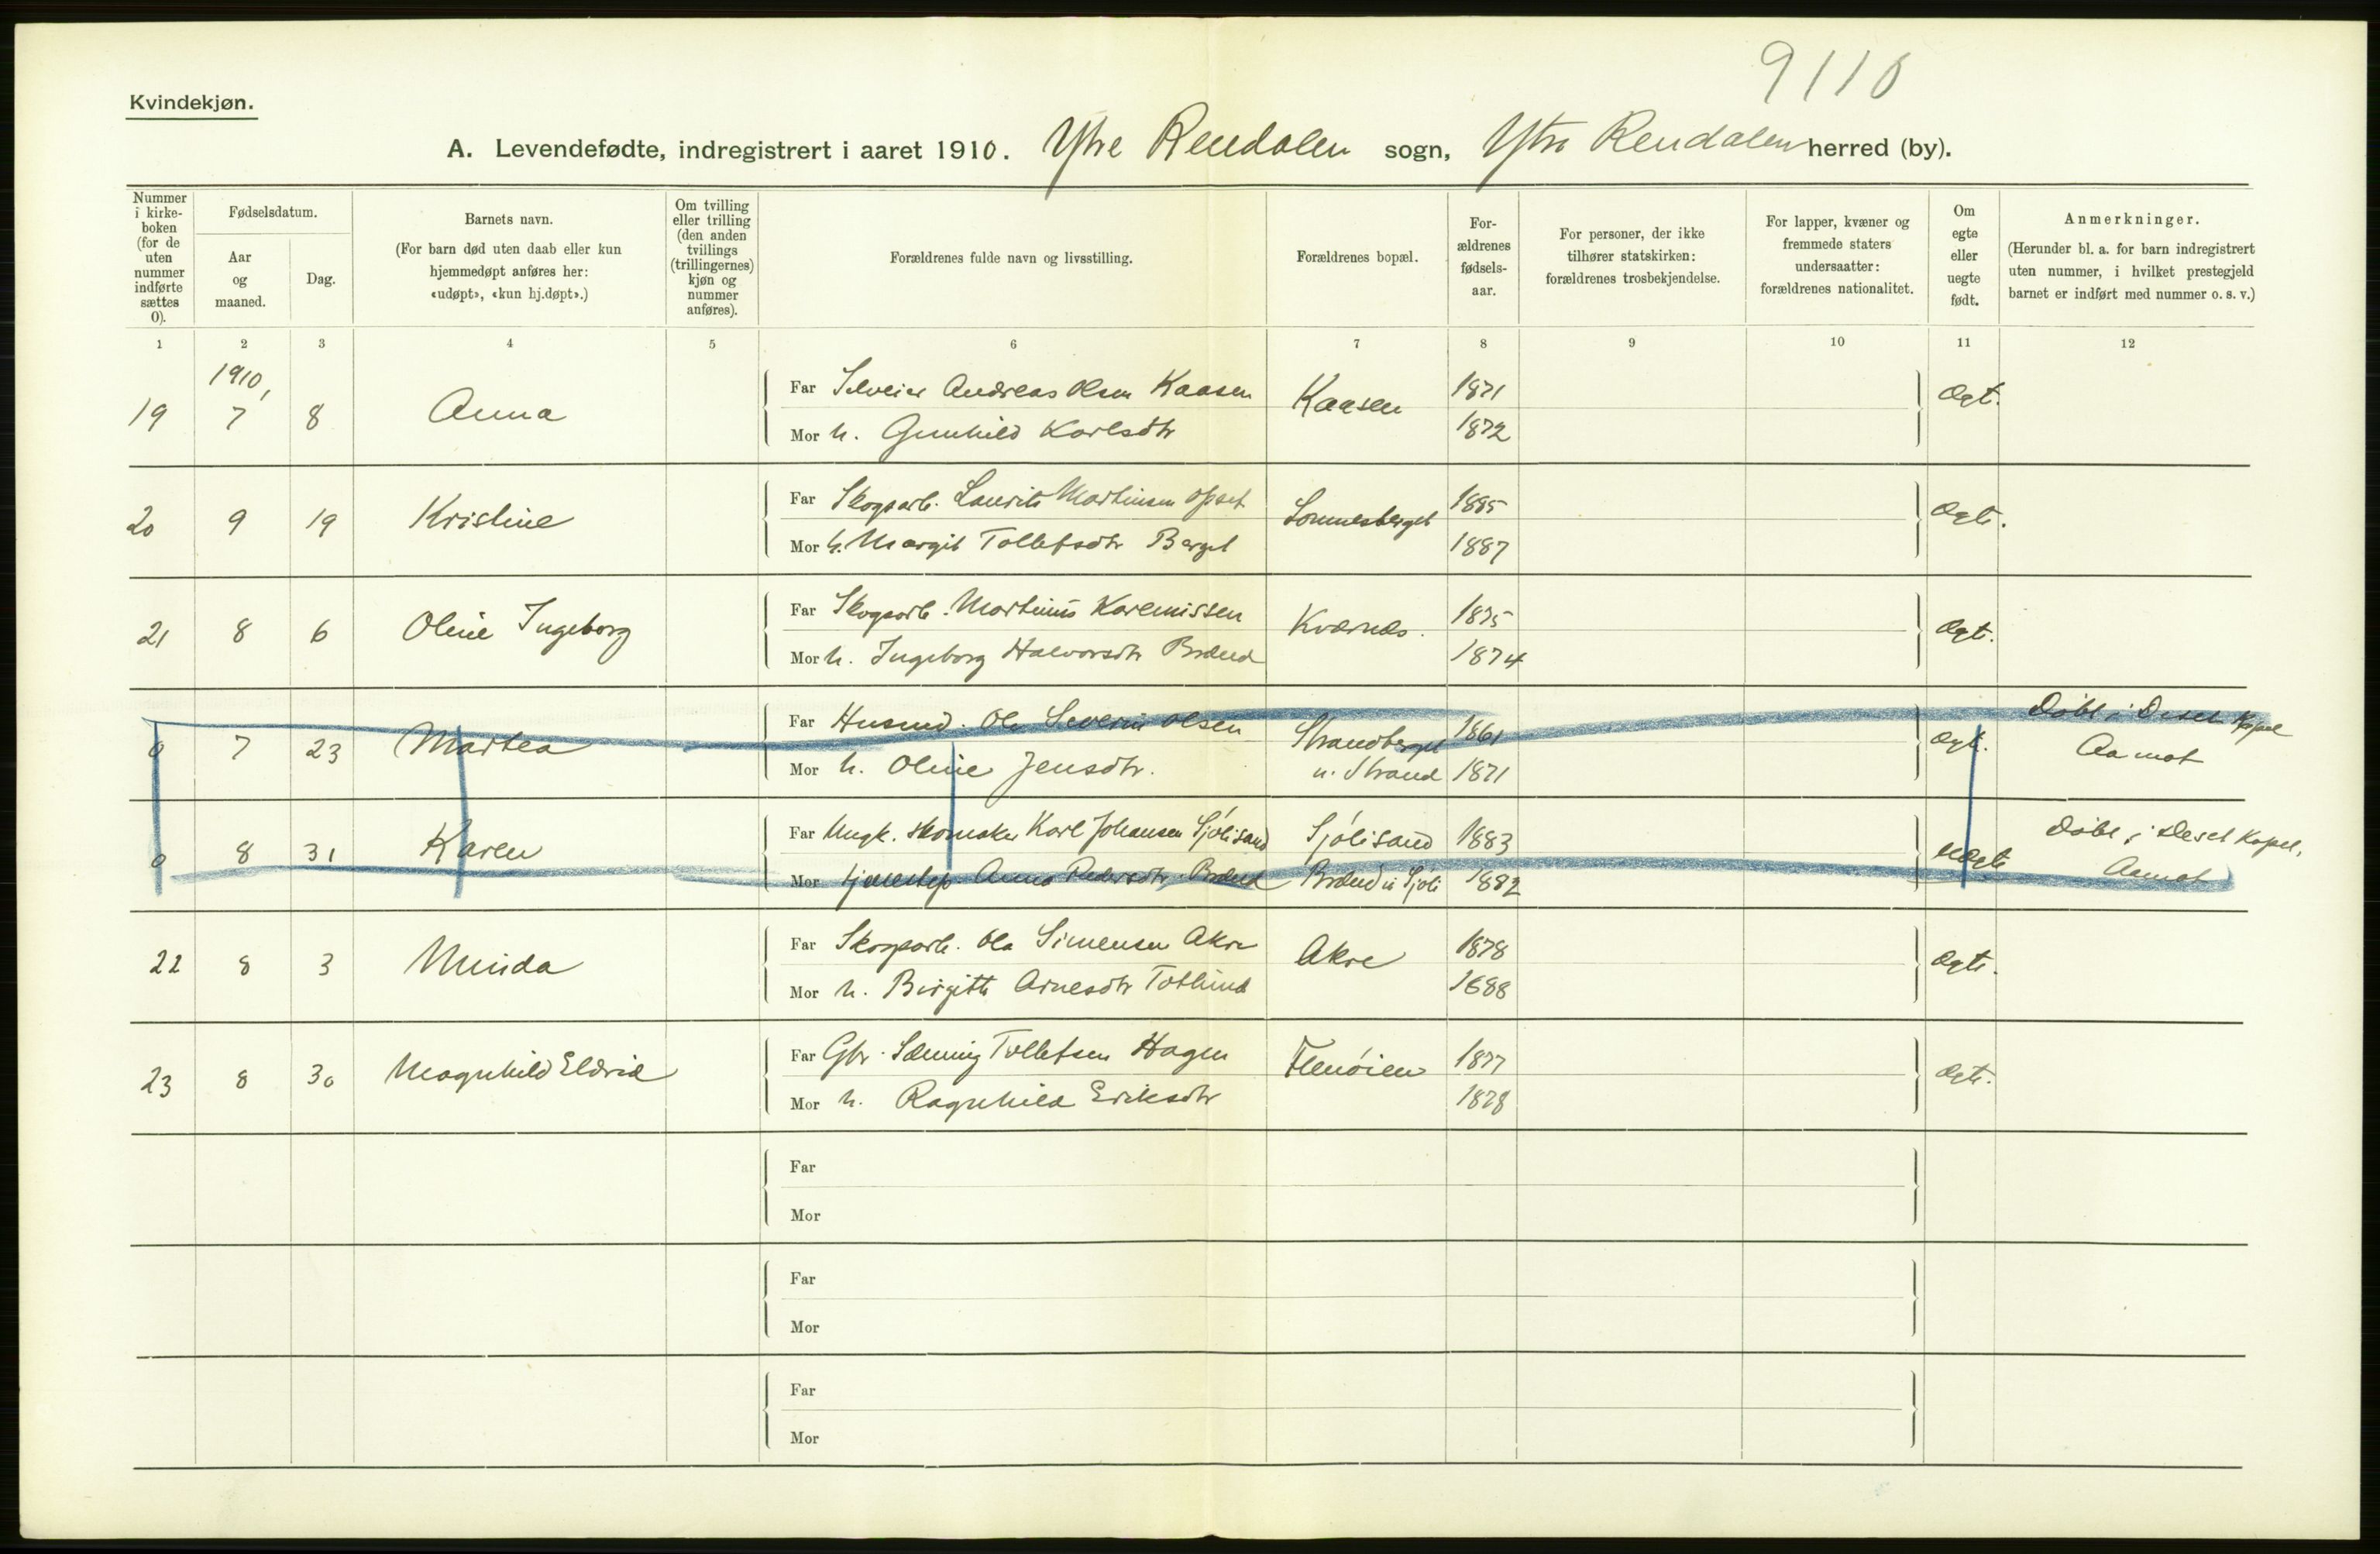 9110
Kvindekjøn.
A. Levendefødte, indregistrert i aaret 1910. Ytre Rendalen sogn, Ytre Rendalen herred (by).
Nummer i kirkeboken (for de uten nummer indførte sættes 0).
Fødselsdatum.
Aar og maaned.
Dag.
Barnets navn.
(For barn død uten daab eller kun hjemmedøpt anføres her: «udøpt», «kun hj.døpt».)
Om tvilling eller trilling (den anden tvillings (trillingernes) kjøn og nummer anføres).
Forældrenes fulde navn og livsstilling.
Forældrenes bopæl.
Forældrenes fødselsaar.
For personer, der ikke tilhører statskirken: forældrenes trosbekjendelse.
For lapper, kvæner og fremmede staters undersaatter: forældrenes nationalitet.
Om egte eller uegte født.
Anmerkninger.
(Herunder bl. a. for barn indregistrert uten nummer, i hvilket prestegjeld barnet er indført med nummer o. s. v.)
1 2 3 4 5 6 7 8 9 10 11 12
1910,
19 7 8 Anna Far Selveier Andreas Olsen Kaasen Kaasen 1871 Ægt.
Mor h. Gunhild Karlsdtr 1872
20 9 19 Kristine Far Skogsarb. Laurits Martinsen Opset Lomnesberget 1885 Ægte.
Mor h. Margit Tollefsdtr Berget 1887
21 8 6 Oline Ingeborg Far Skogsarb. Martinus Karenussen Kværnæs. 1875 Ægt.
Mor h. Ingeborg Halvorsdtr Brænd 1874
0 7 23 Martea Far Husmd. Ole Severin Olsen Strandberget 1861 Ægt. Døbt i Deset Kapel
Mor h. Oline Jensdtr. u. Strand 1871 Aamot
0 8 31 Karen Far Ungk. skomaker Karl Johansen Sjølisand Sjølisand 1883 Uægte Døbt i Deset Kapel,
Mor tjenestep. Anna Pedersdtr. Brænd Brænd u Sjøli 1882 Aamot
22 8 3 Minda Far Skogsarb. Ola Simensen Akre Akre 1878 Ægte.
Mor h. Birgitte Arnesdtr Totlund 1888
23 8 30 Magnhild Eldrid Far Gbr. Sæming Tollefsen Hagen Flenøien 1877 Ægte.
Mor h. Ragnhild Eriksdtr 1878
Far
Mor
Far
Mor
Far
Mor